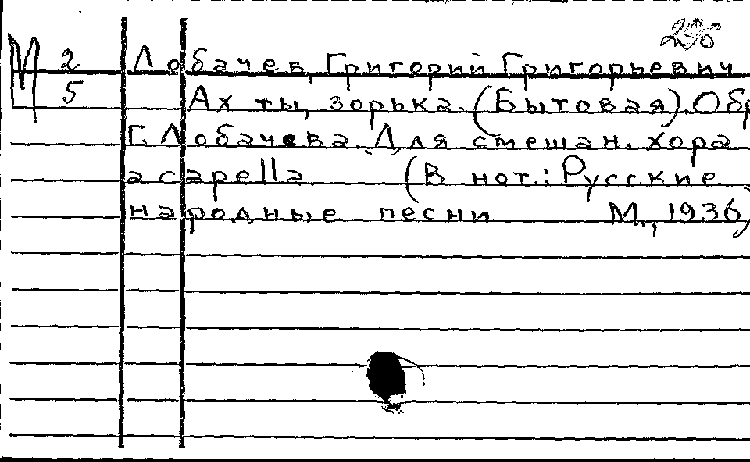 М 2 Лобачев, Григорий Григорьевич
5 Ах ты, зорька. (Бытовая). Обр
Г. Лобачева. Для смешан. хора
a capella (В нот.: Русские
народные песни М., 1936,